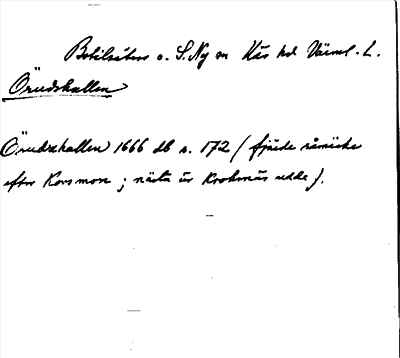 Botilsäters o. S. Ny sn Näs hd Värml. L.
Örudshallen
Örudzhallen 1666 db s. 172 (fjärde råmärke
efter Korsmon; nästa är Krokenäs udde).